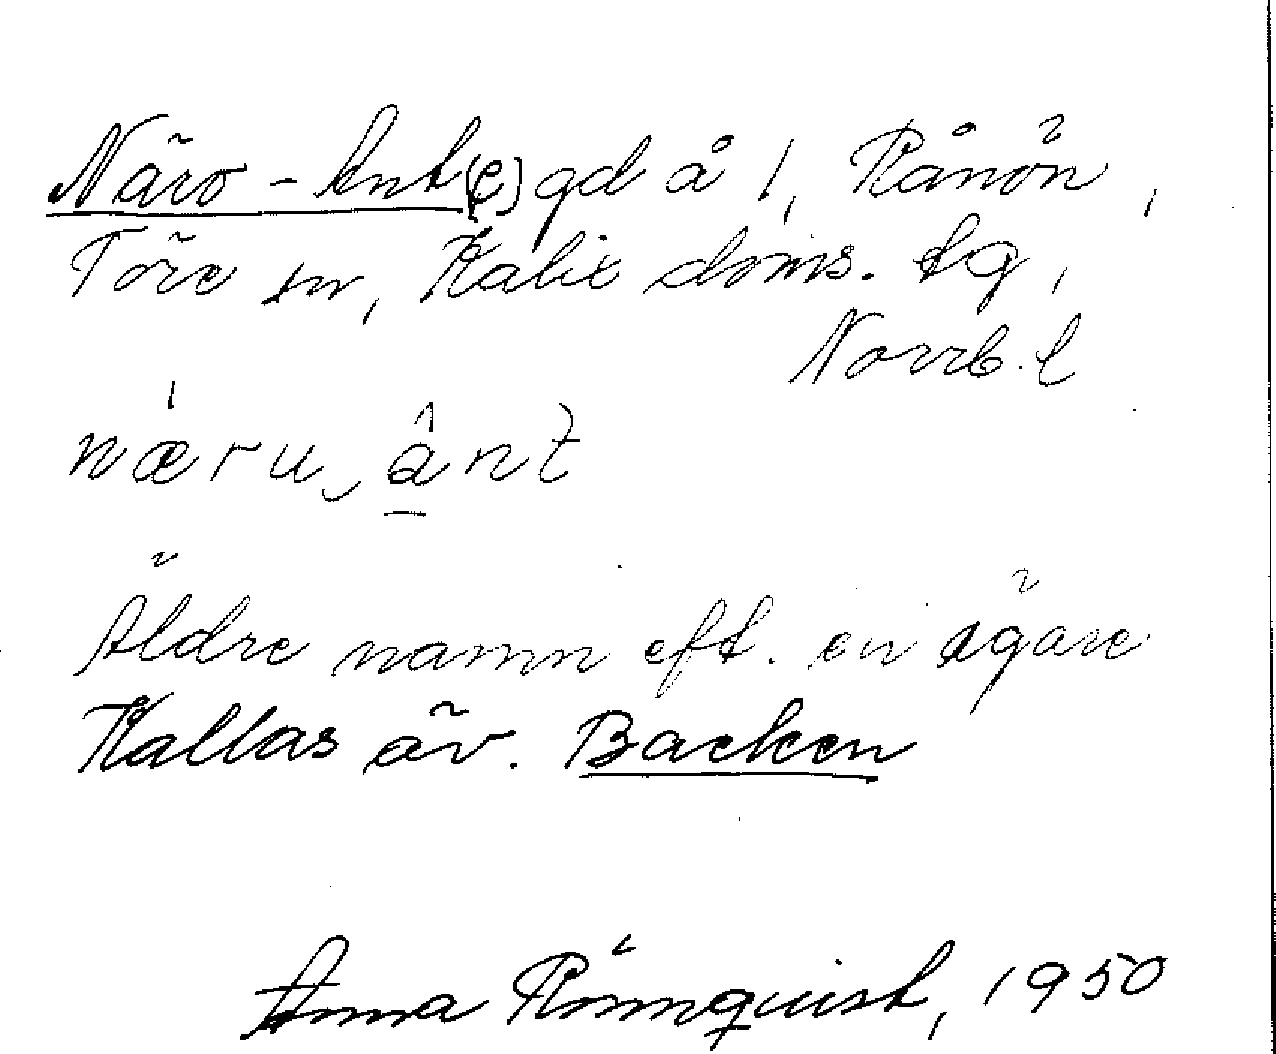 Näro-Ant(e) gd å 1, Rånön,
Töre sn, Kalix doms. tg,
Norrb. l
næru‿ânt
Äldre namn eft. en ägare
Kallas äv. Backen
Anna Rönnquist, 1950